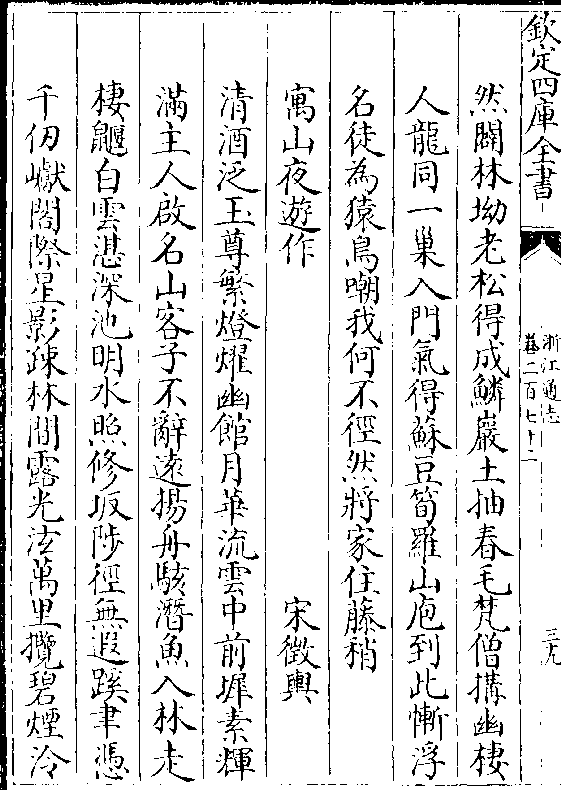 欽定四庫全書
浙江通志
卷二百七十二
三九
然闢林坳老松得成鱗巖土抽春毛梵僧搆幽棲
人龍同一巢入門氣得蘇豆筍羅山庖到此慚浮
名徒為猿鳥嘲我何不徑然將家住藤稍
寓山夜遊作 宋徵輿
清酒泛玉尊繁燈燿幽館月華流雲中前墀素輝
滿主人啟名山客子不辭遠揚舟駭潛魚入林走
棲鼯白雲湛深池明水照修坂陟徑無遐蹊聿憑
千仞巘閣際星影疎林間露光泫萬里攬碧煙泠